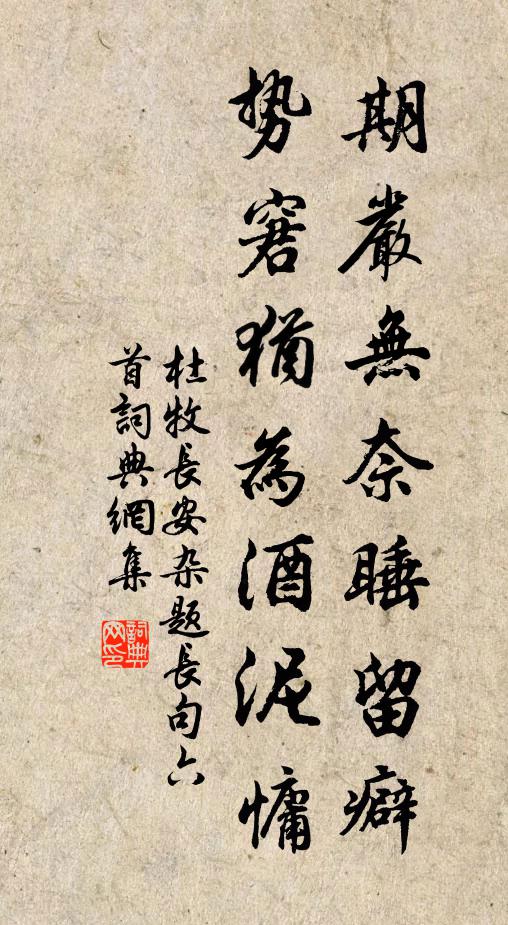 期嚴無奈睡留癖
勢窘猶為酒泥慵
杜牧長安杂題長句六
首詞典網集
詞典
网印